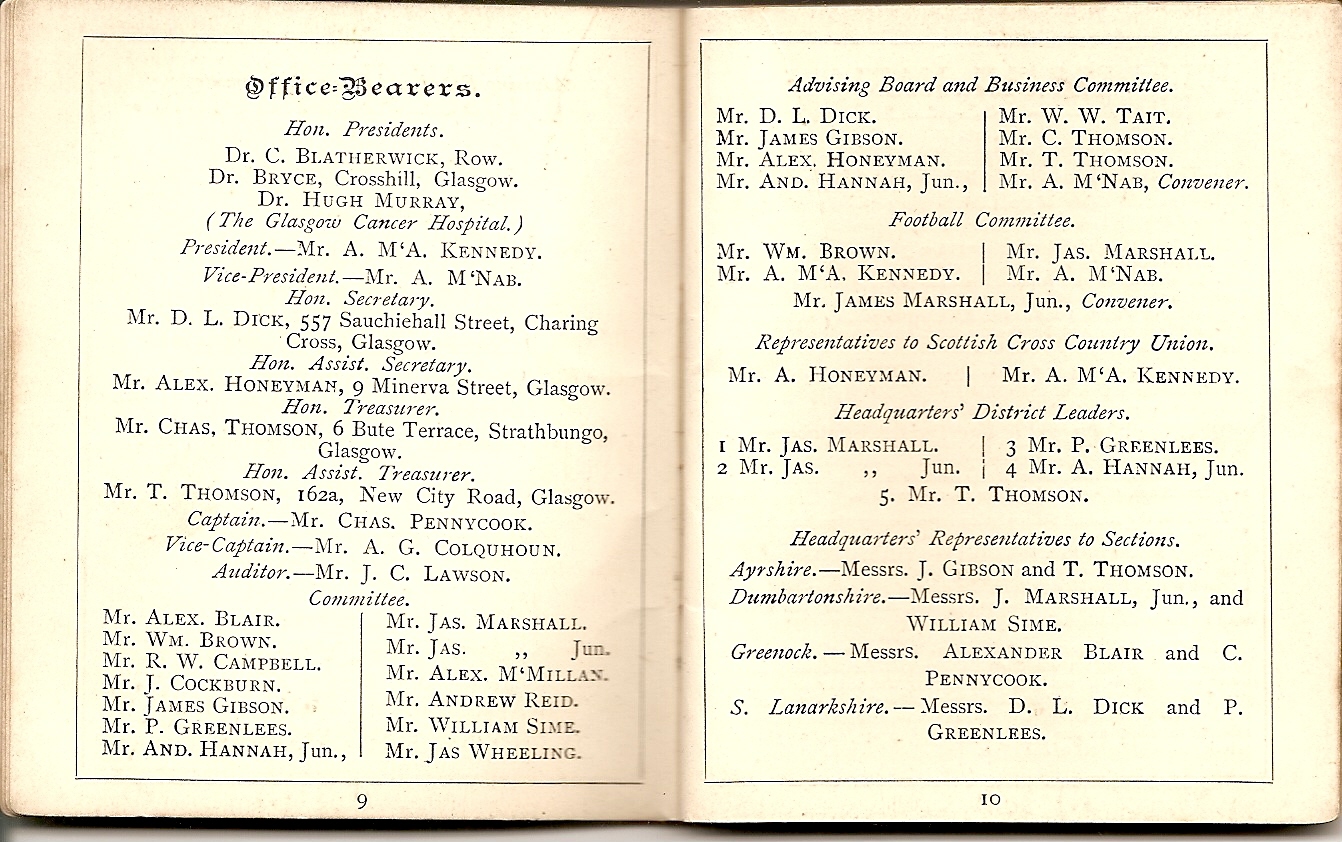 Office-Bearers.
Hon. Presidents.
Dr. C. BLATHERWICK, Row.
Dr. BRYCE, Crosshill, Glasgow.
Dr. HUGH MURRAY,
(The Glasgow Cancer Hospital.)
President.—Mr. A. M‘A. KENNEDY.
Vice-President.—Mr. A. M‘NAB.
Hon. Secretary.
Mr. D. L. DICK, 557 Sauchiehall Street, Charing
Cross, Glasgow.
Hon. Assist. Secretary.
Mr. ALEX. HONEYMAN, 9 Minerva Street, Glasgow.
Hon. Treasurer.
Mr. CHAS. THOMSON, 6 Bute Terrace, Strathbungo,
Glasgow.
Hon. Assist. Treasurer.
Mr. T. THOMSON, 162a, New City Road, Glasgow.
Captain.—Mr. CHAS. PENNYCOOK.
Vice-Captain.—Mr. A. G. COLQUHOUN.
Auditor.—Mr. J. C. LAWSON.
Committee.
Mr. ALEX. BLAIR.
Mr. WM. BROWN.
Mr. R. W. CAMPBELL.
Mr. J. COCKBURN.
Mr. JAMES GIBSON.
Mr. P. GREENLEES.
Mr. AND. HANNAH, Jun.,
Mr. JAS. MARSHALL.
Mr. JAS. ,, Jun.
Mr. ALEX. M‘MILLAN.
Mr. ANDREW REID.
Mr. WILLIAM SIME.
Mr. JAS WHEELING.
9
Advising Board and Business Committee.
Mr. D. L. DICK.
Mr. JAMES GIBSON.
Mr. ALEX. HONEYMAN.
Mr. AND. HANNAH, Jun.,
Mr. W. W. TAIT.
Mr. C. THOMSON.
Mr. T. THOMSON.
Mr. A. M‘NAB, Convener.
Football Committee.
Mr. WM. BROWN.
Mr. A. M‘A. KENNEDY.
Mr. JAS. MARSHALL.
Mr. A. M‘NAB.
Mr. JAMES MARSHALL, Jun., Convener.
Representatives to Scottish Cross Country Union.
Mr. A. HONEYMAN. | Mr. A. M‘A. KENNEDY.
Headquarters' District Leaders.
1 Mr. JAS. MARSHALL.
2 Mr. JAS. ,, Jun.
3 Mr. P. GREENLEES.
4 Mr. A. HANNAH, Jun.
5. Mr. T. THOMSON.
Headquarters' Representatives to Sections.
Ayrshire.—Messrs. J. GIBSON and T. THOMSON.
Dumbartonshire.—Messrs. J. MARSHALL, Jun., and
WILLIAM SIME.
Greenock.—Messrs. ALEXANDER BLAIR and C.
PENNYCOOK.
S. Lanarkshire.—Messrs. D. L. DICK and P.
GREENLEES.
10